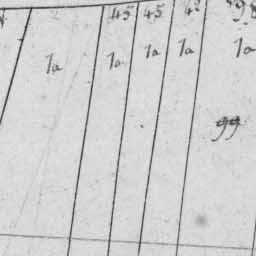 45 45 45 98
1a 1a 1a 1a 1a
99